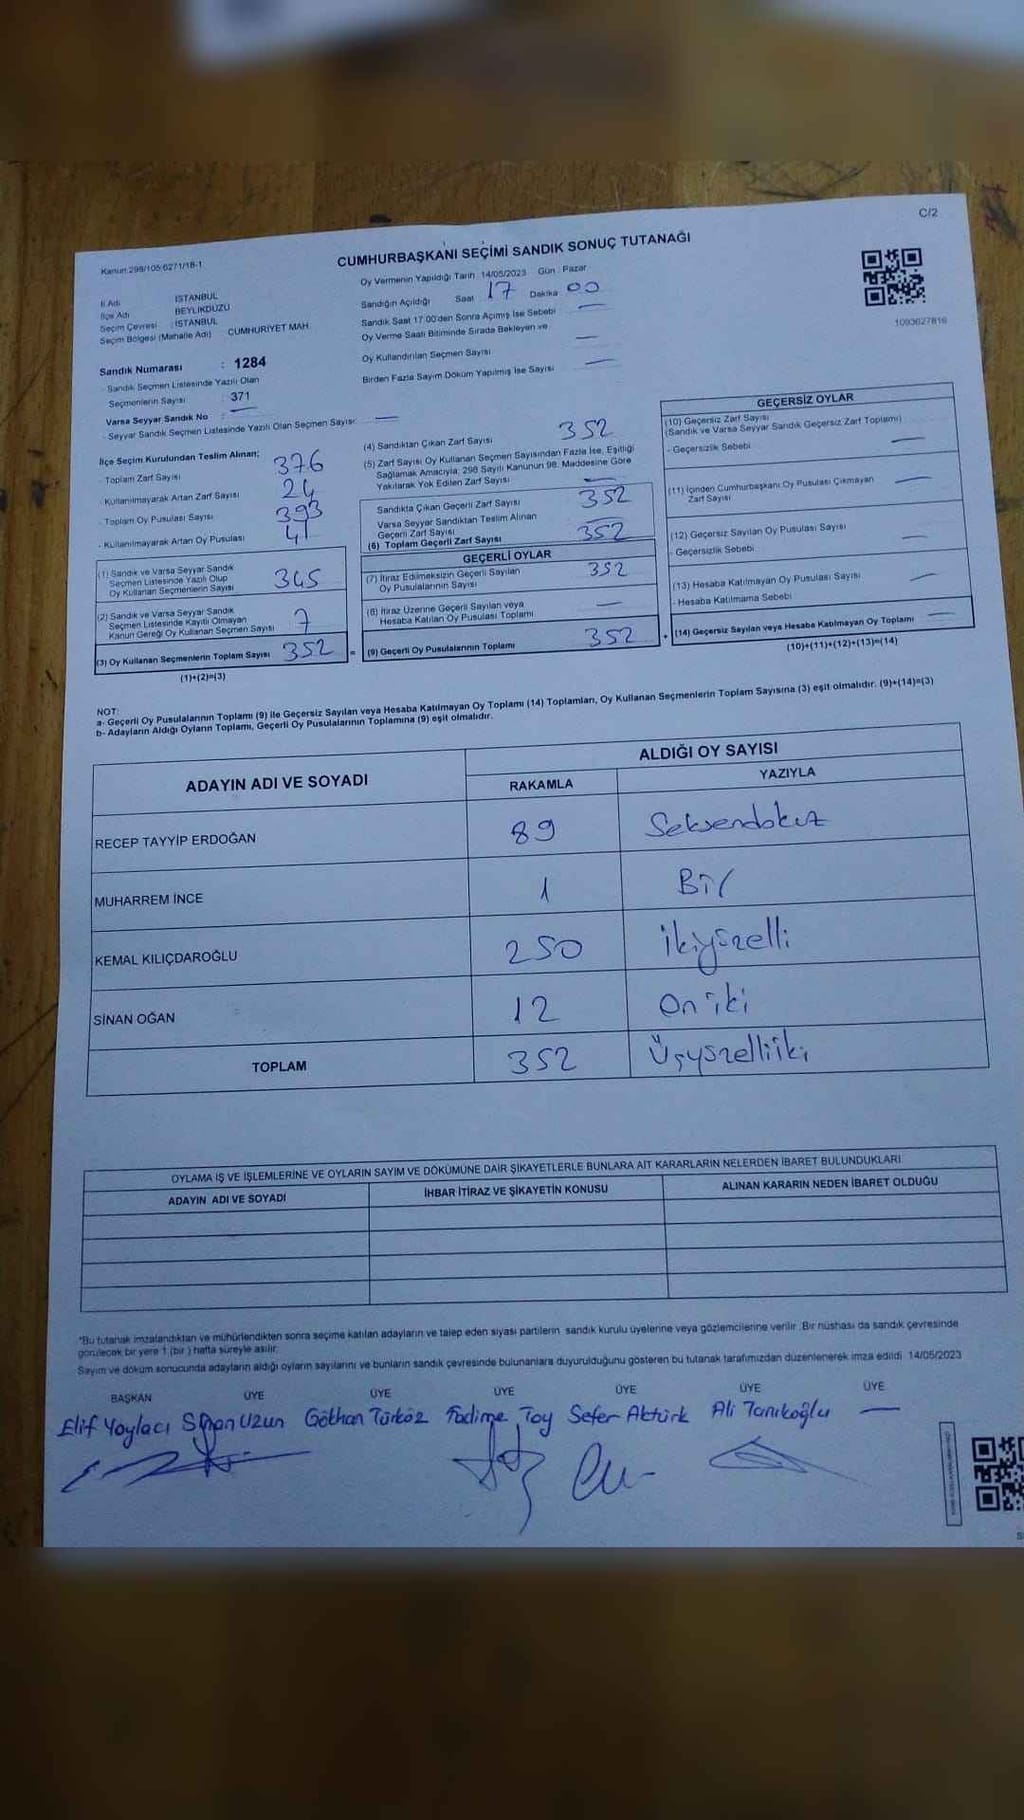 C/2
Kanun:298/105;6271/18-1
CUMHURBAŞKANI SEÇİMİ SANDIK SONUÇ TUTANAĞI
İl Adı : İSTANBUL
İlçe Adı BEYLİKDÜZÜ
Seçim Çevresi : İSTANBUL
Seçim Bölgesi (Mahalle Adı) CUMHURİYET MAH.
Sandık Numarası : 1284
- Sandık Seçmen Listesinde Yazılı Olan
Seçmenlerin Sayısı : 371
Varsa Seyyar Sandık No : —
- Seyyar Sandık Seçmen Listesinde Yazılı Olan Seçmen Sayısı: —
Oy Vermenin Yapıldığı Tarih 14/05/2023 Gün : Pazar
Sandığın Açıldığı Saat 17 Dakika 00
Sandık Saat 17:00'den Sonra Açımış İse Sebebi —
Oy Verme Saati Bitiminde Sırada Bekleyen ve
Oy Kullandırılan Seçmen Sayısı —
Birden Fazla Sayım Döküm Yapılmış İse Sayısı —
1093627816
İlçe Seçim Kurulundan Teslim Alınan;
- Toplam Zarf Sayısı 376
- Kullanılmayarak Artan Zarf Sayısı 24
- Toplam Oy Pusulası Sayısı 393
- Kullanılmayarak Artan Oy Pusulası 41
(1) Sandık ve Varsa Seyyar Sandık
Seçmen Listesinde Yazılı Olup
Oy Kullanan Seçmenlerin Sayısı 345
(2) Sandık ve Varsa Seyyar Sandık
Seçmen Listesinde Kayıtlı Olmayan
Kanun Gereği Oy Kullanan Seçmen Sayısı 7
(3) Oy Kullanan Seçmenlerin Toplam Sayısı 352 =
(1)+(2)=(3)
(4) Sandıktan Çıkan Zarf Sayısı 352
(5) Zarf Sayısı Oy Kullanan Seçmen Sayısından Fazla İse, Eşitliği
Sağlamak Amacıyla; 298 Sayılı Kanunun 98. Maddesine Göre
Yakılarak Yok Edilen Zarf Sayısı —
Sandıkta Çıkan Geçerli Zarf Sayısı 352
Varsa Seyyar Sandıktan Teslim Alınan
Geçerli Zarf Sayısı —
(6) Toplam Geçerli Zarf Sayısı 352
GEÇERLİ OYLAR
(7) İtiraz Edilmeksizin Geçerli Sayılan
Oy Pusulalarının Sayısı 352
(8) İtiraz Üzerine Geçerli Sayılan veya
Hesaba Katılan Oy Pusulası Toplamı —
(9) Geçerli Oy Pusulalarının Toplamı 352 +
GEÇERSİZ OYLAR
(10) Geçersiz Zarf Sayısı
(Sandık ve Varsa Seyyar Sandık Geçersiz Zarf Toplamı)
- Geçersizlik Sebebi —
(11) İçinden Cumhurbaşkanı Oy Pusulası Çıkmayan
Zarf Sayısı —
(12) Geçersiz Sayılan Oy Pusulası Sayısı
- Geçersizlik Sebebi —
(13) Hesaba Katılmayan Oy Pusulası Sayısı —
- Hesaba Katılmama Sebebi
(14) Geçersiz Sayılan veya Hesaba Katılmayan Oy Toplamı —
(10)+(11)+(12)+(13)=(14)
NOT:
a- Geçerli Oy Pusulalarının Toplamı (9) ile Geçersiz Sayılan veya Hesaba Katılmayan Oy Toplamı (14) Toplamları, Oy Kullanan Seçmenlerin Toplam Sayısına (3) eşit olmalıdır. (9)+(14)=(3)
b- Adayların Aldığı Oyların Toplamı, Geçerli Oy Pusulalarının Toplamına (9) eşit olmalıdır.
ADAYIN ADI VE SOYADI ALDIĞI OY SAYISI
RAKAMLA YAZIYLA
RECEP TAYYİP ERDOĞAN 89 Seksendokuz
MUHARREM İNCE 1 Bir
KEMAL KILIÇDAROĞLU 250 ikiyüzelli
SİNAN OĞAN 12 On iki
TOPLAM 352 Üçyüzelliiki
OYLAMA İŞ VE İŞLEMLERİNE VE OYLARIN SAYIM VE DÖKÜMÜNE DAİR ŞİKAYETLERLE BUNLARA AİT KARARLARIN NELERDEN İBARET BULUNDUKLARI
ADAYIN ADI VE SOYADI İHBAR İTİRAZ VE ŞİKAYETİN KONUSU ALINAN KARARIN NEDEN İBARET OLDUĞU
*Bu tutanak imzalandıktan ve mühürlendikten sonra seçime katılan adayların ve talep eden siyasi partilerin sandık kurulu üyelerine veya gözlemcilerine verilir. Bir nüshası da sandık çevresinde
görülecek bir yere 1 (bir) hafta süreyle asılır.
Sayım ve döküm sonucunda adayların aldığı oyların sayılarını ve bunların sandık çevresinde bulunanlara duyurulduğunu gösteren bu tutanak tarafımızdan düzenlenerek imza edildi. 14/05/2023
BAŞKAN ÜYE ÜYE ÜYE ÜYE ÜYE ÜYE
Elif Yaylacı Sinan Uzun Gökhan Türköz Fadime Toy Sefer Aktürk Ali Tanıkoğlu —